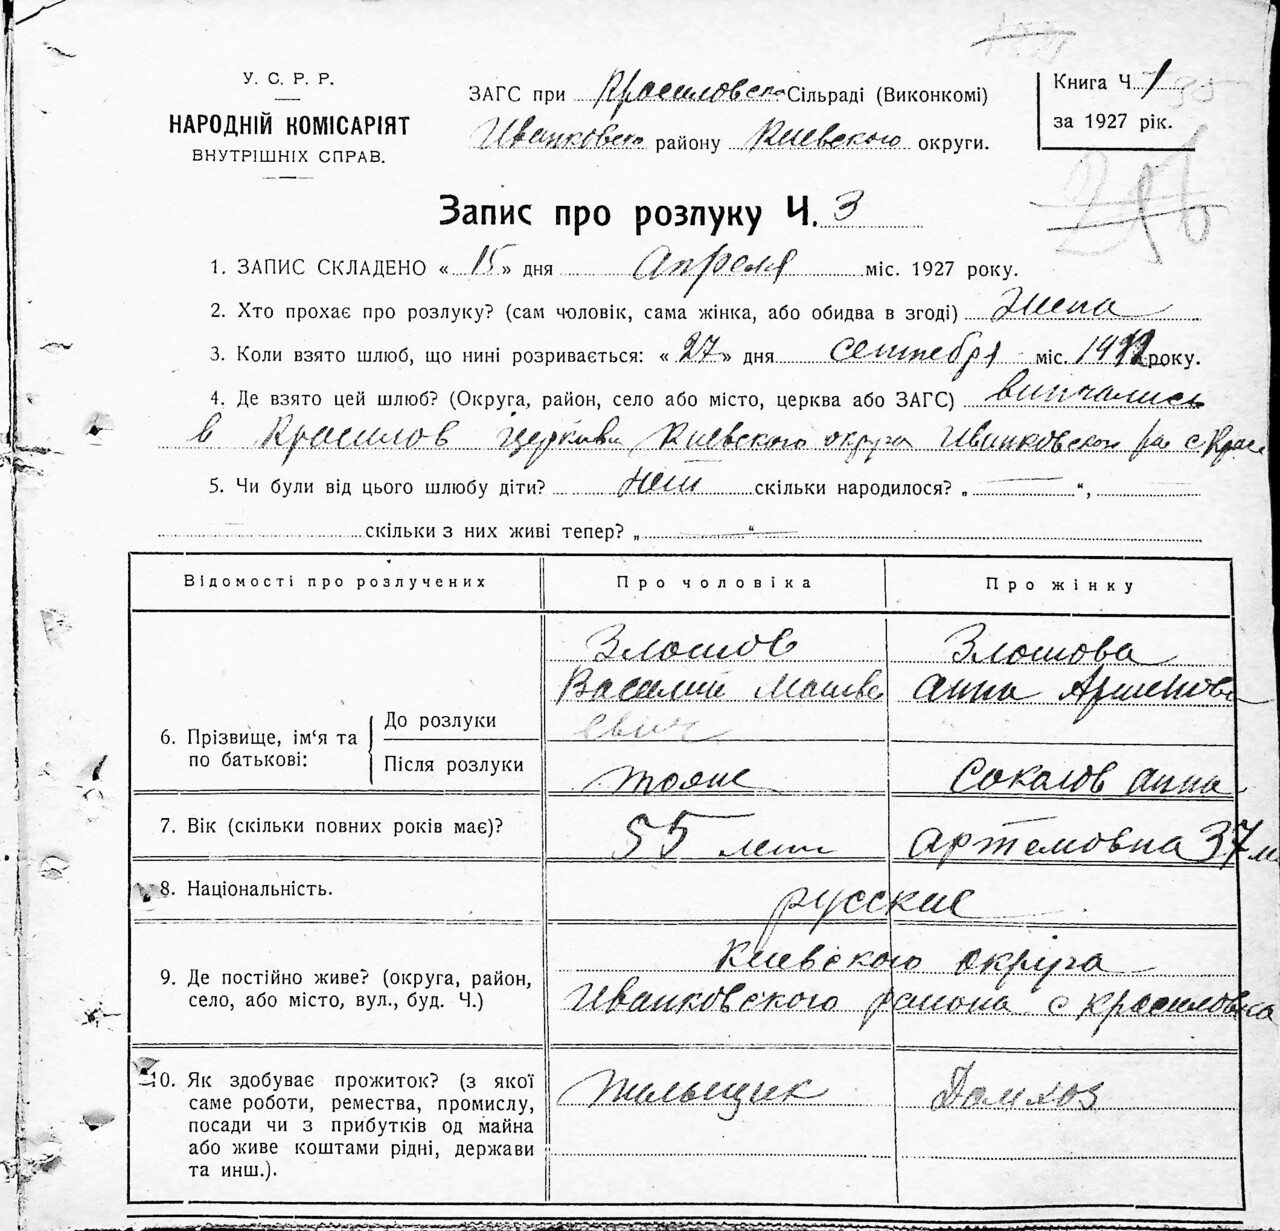 У. С. Р. Р.
НАРОДНІЙ КОМІСАРІЯТ
ВНУТРІШНІХ СПРАВ.
ЗАГС при Красиловско Сільраді (Виконкомі)
Иванковско району Киевского округи.
Книга Ч. 1
за 1927 рік.
Запис про розлуку Ч. 3
1. ЗАПИС СКЛАДЕНО « 15 » дня Апреля міс. 1927 року.
2. Хто прохає про розлуку? (сам чоловік, сама жінка, або обидва в згоді) Жена
3. Коли взято шлюб, що нині розривається: « 27 » дня сентября міс. 19 року.
4. Де взято цей шлюб? (Округа, район, село або місто, церква або ЗАГС) винчались
в Красилов церкви Киевского округа Иванковском ра с Крас
5. Чи були від цього шлюбу діти? нет скільки народилося? „ — “,
скільки з них живі тепер? „ — “
Відомості про розлучених
Про чоловіка
Про жінку
6. Прізвище, ім‘я та по батькові:
До розлуки
Після розлуки
Злотов
Василий Матве
евич
тоже
Злотова
Анна
Соколов Анна
7. Вік (скільки повних років має)?
55 лет
Артемовна 37 л
8. Національність.
русские
9. Де постійно живе? (округа, район,
село, або місто, вул., буд. Ч.)
Киевского округа
Иванковского района с Красиловка
10. Як здобуває прожиток? (з якої
саме роботи, ремества, промислу,
посади чи з прибутків од майна
або живе коштами рідні, держави
та инш.).
Пильщик
Домхоз